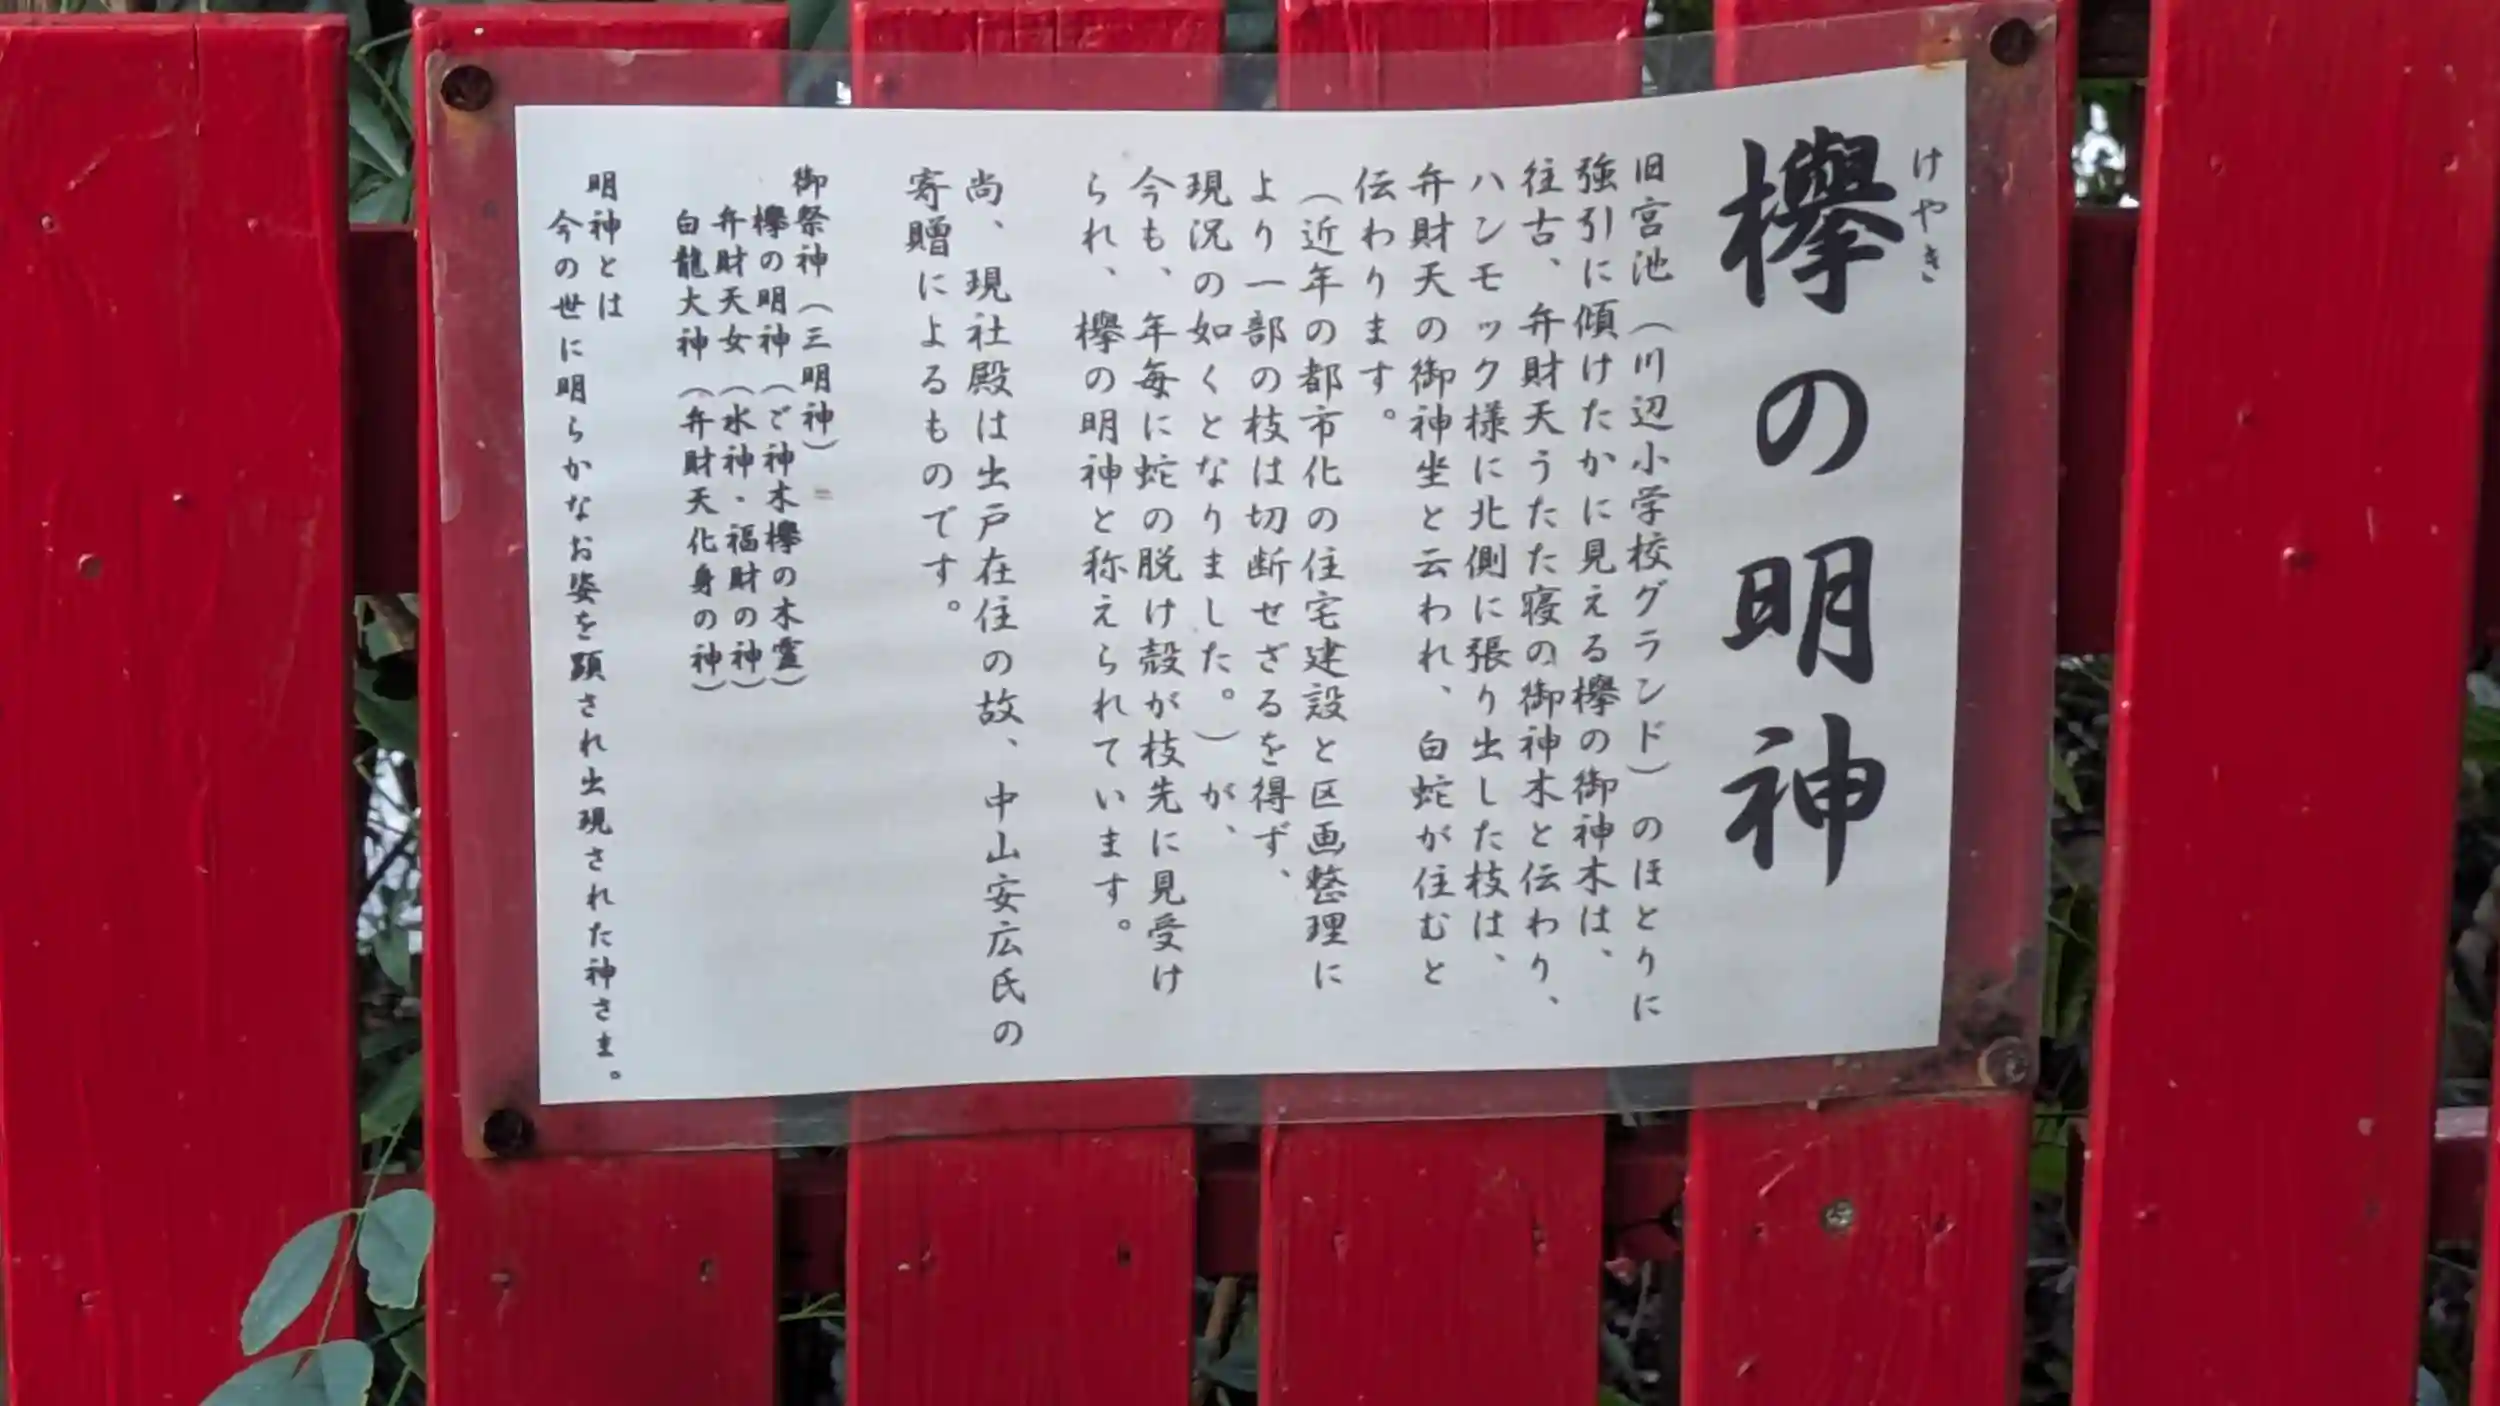 けやき
欅の明神
旧宮池（川辺小学校グランド）のほとりに
強引に傾けたかに見える欅の御神木は、
往古、弁財天うたた寝の御神木と伝わり、
ハンモック様に北側に張り出した枝は、
弁財天の御神坐と云われ、白蛇が住むと
伝わります。
（近年の都市化の住宅建設と区画整理に
より一部の枝は切断せざるを得ず、
現況の如くとなりました。）が、
今も、年毎に蛇の脱け殻が枝先に見受け
られ、欅の明神と称えられています。
尚、現社殿は出戸在住の故、中山安広氏の
寄贈によるものです。
御祭神（三明神）
欅の明神（ご神木欅の木霊）
弁財天女（水神・福財の神）
白龍大神（弁財天化身の神）
明神とは
今の世に明らかなお姿を顕され出現された神さま。